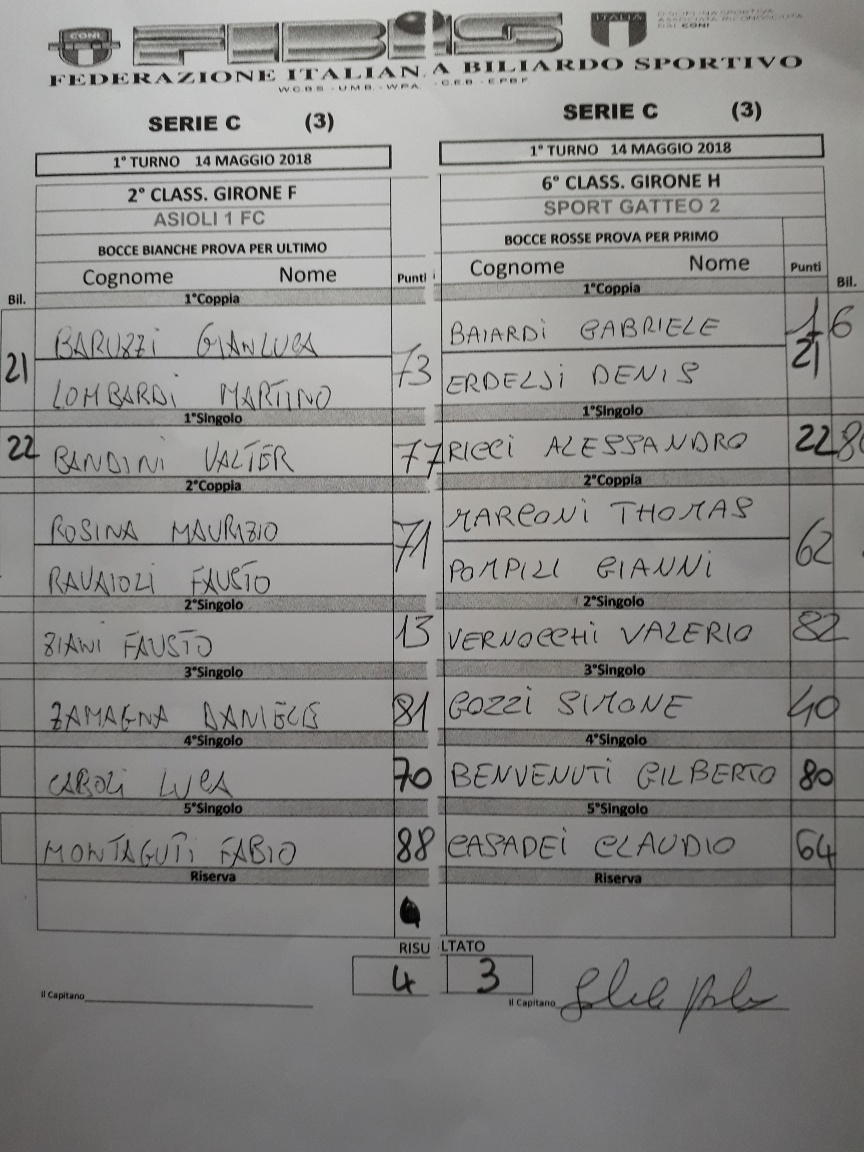 CONI FIBiS ITALIA
FEDERAZIONE ITALIANA BILIARDO SPORTIVO
W.C.B.S. - U.M.B. - W.P.A. - C.E.B. - E.P.B.F
SERIE C (3)
1° TURNO 14 MAGGIO 2018
2° CLASS. GIRONE F
ASIOLI 1 FC
BOCCE BIANCHE PROVA PER ULTIMO
Cognome Nome Punti
Bil.
1°Coppia
BARUZZI GIANLUCA
21 73
LOMBARDI MARTINO
1°Singolo
22 BANDINI VALTER 77
2°Coppia
ROSINA MAURIZIO
71
RAVAIOLI FAUSTO
2°Singolo
ZIANI FAUSTO 13
3°Singolo
ZAMAGNA DANIELE 81
4°Singolo
CAROLI LUCA 70
5°Singolo
MONTAGUTI FABIO 88
Riserva
SERIE C (3)
1° TURNO 14 MAGGIO 2018
6° CLASS. GIRONE H
SPORT GATTEO 2
BOCCE ROSSE PROVA PER PRIMO
Cognome Nome Punti
Bil.
1°Coppia
BAIARDI GABRIELE 6
21
ERDELJI DENIS
1°Singolo
RICCI ALESSANDRO 22 80
2°Coppia
MARCONI THOMAS
62
POMPILI GIANNI
2°Singolo
VERNOCCHI VALERIO 82
3°Singolo
GOZZI SIMONE 40
4°Singolo
BENVENUTI GILBERTO 80
5°Singolo
CASADEI CLAUDIO 64
Riserva
RISULTATO
4 3
Il Capitano
Il Capitano